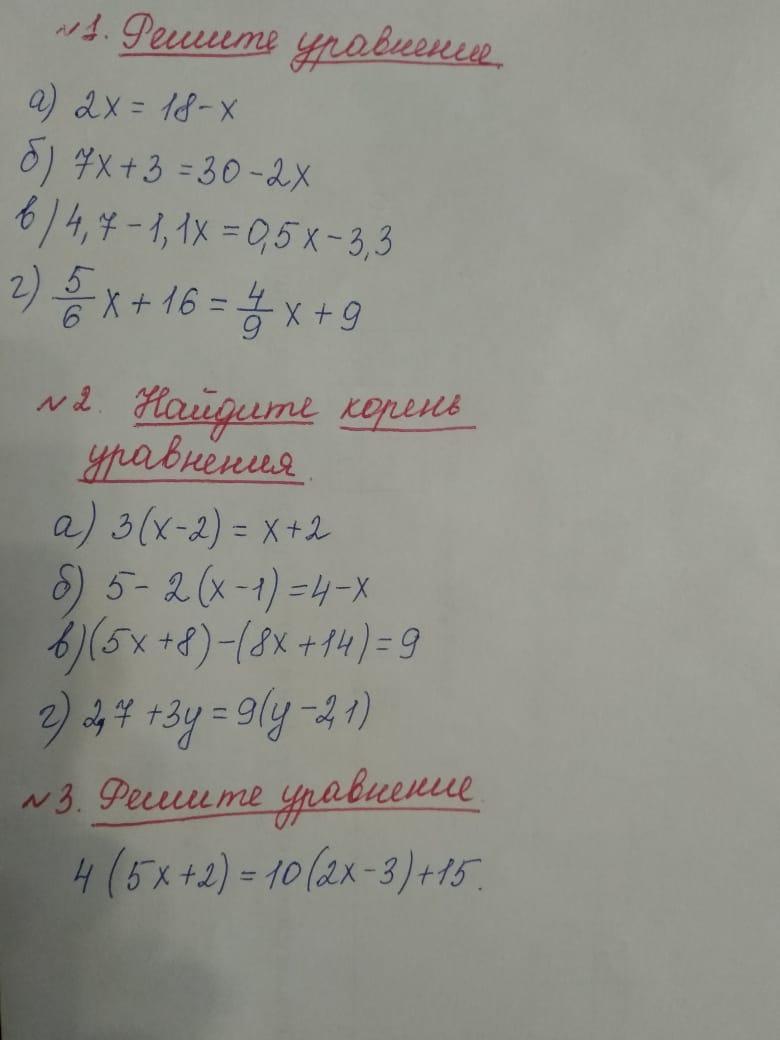 №1. Решите уравнение.
а) 2x = 18 - x
б) 7x + 3 = 30 - 2x
в) 4,7 - 1,1x = 0,5x - 3,3
г) 5/6 x + 16 = 4/9 x + 9
№2. Найдите корень
уравнения.
а) 3(x-2) = x+2
б) 5 - 2(x-1) = 4-x
в) (5x+8) - (8x+14) = 9
г) 2,7 + 3y = 9(y - 2,1)
№3. Решите уравнение.
4(5x+2) = 10(2x-3)+15.